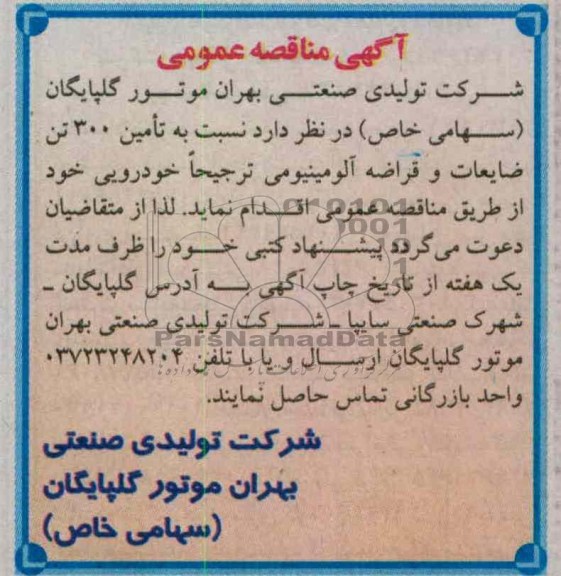 آگهی مناقصه عمومی
شرکت تولیدی صنعتی بهران موتور گلپایگان
(سهامی خاص) در نظر دارد نسبت به تأمین ۳۰۰ تن
ضایعات و قراضه آلومینیومی ترجیحاً خودرویی خود
از طریق مناقصه عمومی اقدام نماید. لذا از متقاضیان
دعوت می‌گردد پیشنهاد کتبی خود را ظرف مدت
یک هفته از تاریخ چاپ آگهی به آدرس گلپایگان ـ
شهرک صنعتی سایپا ـ شرکت تولیدی صنعتی بهران
موتور گلپایگان ارسال و یا با تلفن ۰۳۷۲۳۲۴۸۲۰۴
واحد بازرگانی تماس حاصل نمایند.
شرکت تولیدی صنعتی
بهران موتور گلپایگان
(سهامی خاص)
ParsNamadData